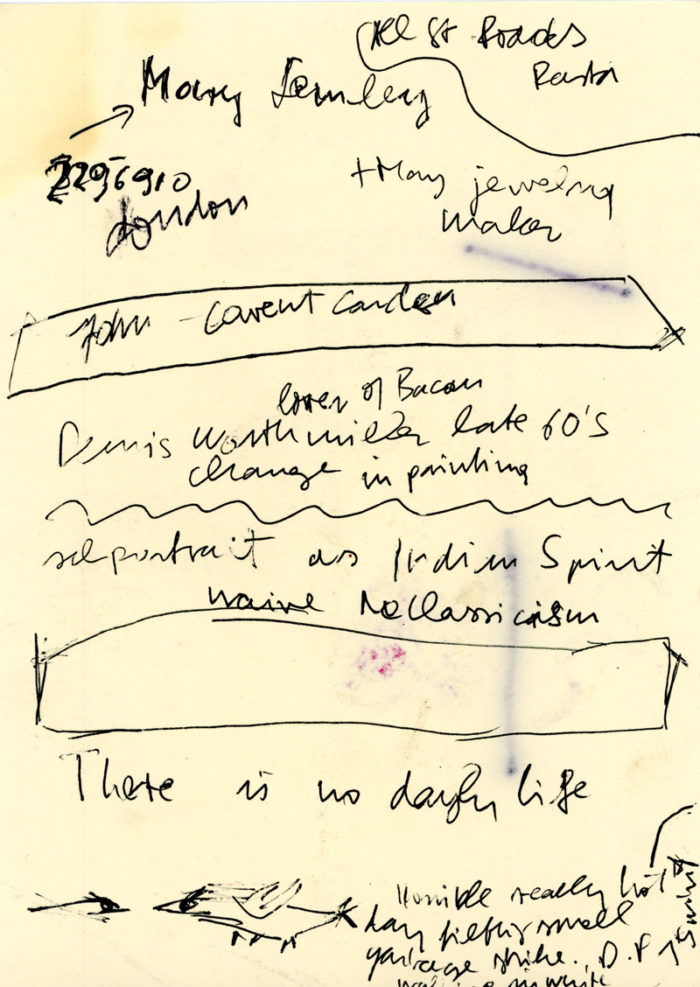 All St Roads
Rasta
Mary
2296910
London
+ Mary jewelry
maker
John - Covent Garden
lover of Bacon
Denis Worthmiller late 60's
change in painting
selportrait as Indian Spirit
naive Noclassicism
There is no dayly life
Horrible really hot
day filthy smell
garbage strike. D.P
walking in white